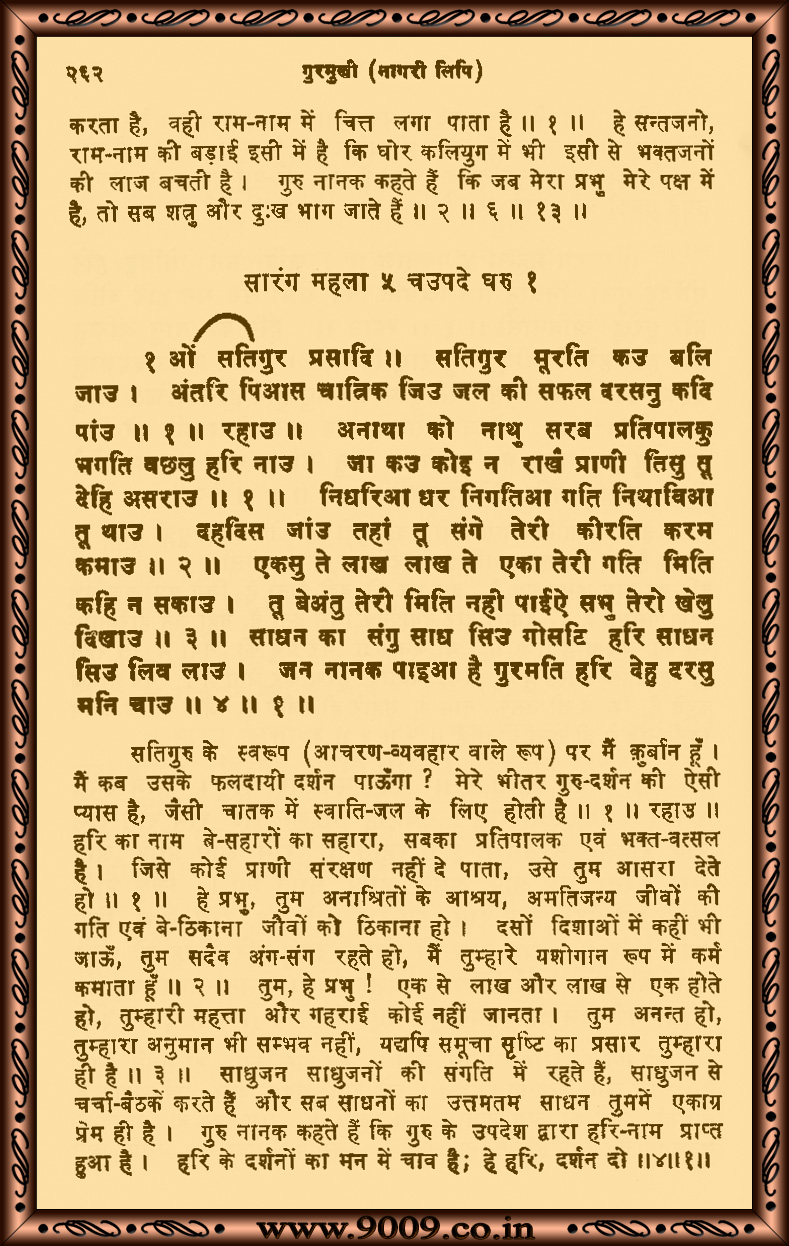 २६२ गुरमुखी (नागरी लिपि)
करता है, वही राम-नाम में चित्त लगा पाता है ॥ १ ॥ हे सन्तजनो,
राम-नाम की बड़ाई इसी में है कि घोर कलियुग में भी इसी से भक्तजनों
की लाज बचती है । गुरु नानक कहते हैं कि जब मेरा प्रभु मेरे पक्ष में
है, तो सब शत्रु और दुःख भाग जाते हैं ॥ २ ॥ ६ ॥ १३ ॥
सारंग महला ५ चउपदे घरु १
१ ओं सतिगुर प्रसादि ॥ सतिगुर मूरति कउ बलि
जाउ । अंतरि पिआस चात्रिक जिउ जल की सफल दरसनु कदि
पांउ ॥ १ ॥ रहाउ ॥ अनाथा को नाथु सरब प्रतिपालकु
भगति वछलु हरि नाउ । जा कउ कोइ न राखै प्राणी तिसु तू
देहि असराउ ॥ १ ॥ निधरिआ धर निगतिआ गति निथाविआ
तू थाउ । दहदिस जांउ तहां तू संगे तेरी कीरति करम
कमाउ ॥ २ ॥ एकसु ते लाख लाख ते एका तेरी गति मिति
कहि न सकाउ । तू बेअंतु तेरी मिति नही पाईऐ सभु तेरो खेलु
दिखाउ ॥ ३ ॥ साधन का संगु साध सिउ गोसटि हरि साधन
सिउ लिव लाउ । जन नानक पाइआ है गुरमति हरि देहु दरसु
मनि चाउ ॥ ४ ॥ १ ॥
सतिगुरु के स्वरूप (आचरण-व्यवहार वाले रूप) पर मैं क़ुर्बान हूँ ।
मैं कब उसके फलदायी दर्शन पाऊँगा ? मेरे भीतर गुरु-दर्शन की ऐसी
प्यास है, जैसी चातक में स्वाति-जल के लिए होती है ॥ १ ॥ रहाउ ॥
हरि का नाम बे-सहारों का सहारा, सबका प्रतिपालक एवं भक्त-वत्सल
है । जिसे कोई प्राणी संरक्षण नहीं दे पाता, उसे तुम आसरा देते
हो ॥ १ ॥ हे प्रभु, तुम अनाश्रितों के आश्रय, अमतिजन्य जीवों की
गति एवं बे-ठिकाना जीवों को ठिकाना हो । दसों दिशाओं में कहीं भी
जाऊँ, तुम सदैव अंग-संग रहते हो, मैं तुम्हारे यशोगान रूप में कर्म
कमाता हूँ ॥ २ ॥ तुम, हे प्रभु ! एक से लाख और लाख से एक होते
हो, तुम्हारी महत्ता और गहराई कोई नहीं जानता । तुम अनन्त हो,
तुम्हारा अनुमान भी सम्भव नहीं, यद्यपि समूचा सृष्टि का प्रसार तुम्हारा
ही है ॥ ३ ॥ साधुजन साधुजनों की संगति में रहते हैं, साधुजन से
चर्चा-बैठकें करते हैं और सब साधनों का उत्तमतम साधन तुममें एकाग्र
प्रेम ही है । गुरु नानक कहते हैं कि गुरु के उपदेश द्वारा हरि-नाम प्राप्त
हुआ है । हरि के दर्शनों का मन में चाव है; हे हरि, दर्शन दो ॥४॥१॥
www.9009.co.in